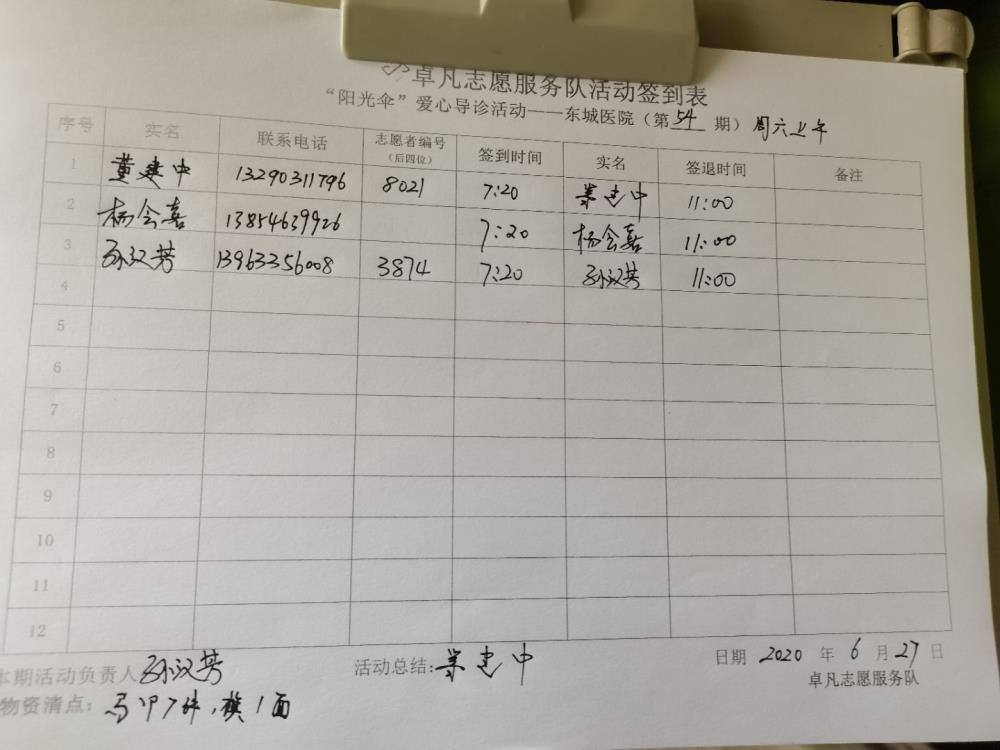 卓凡志愿服务队活动签到表
“阳光伞”爱心导诊活动——东城医院（第 54 期）周六上午
序号 实名 联系电话 志愿者编号（后四位） 签到时间 实名 签退时间 备注
1 黄建中 13290311796 8021 7:20 建中 11:00
2 杨会嘉 13854639926 7:20 杨会嘉 11:00
3 孙汉芳 13963356008 3874 7:20 孙汉芳 11:00
4
5
6
7
8
9
10
11
12
本期活动负责人 孙汉芳 活动总结: 建中 日期 2020 年 6 月 27 日
卓凡志愿服务队
物资清点: 马甲7件，旗1面